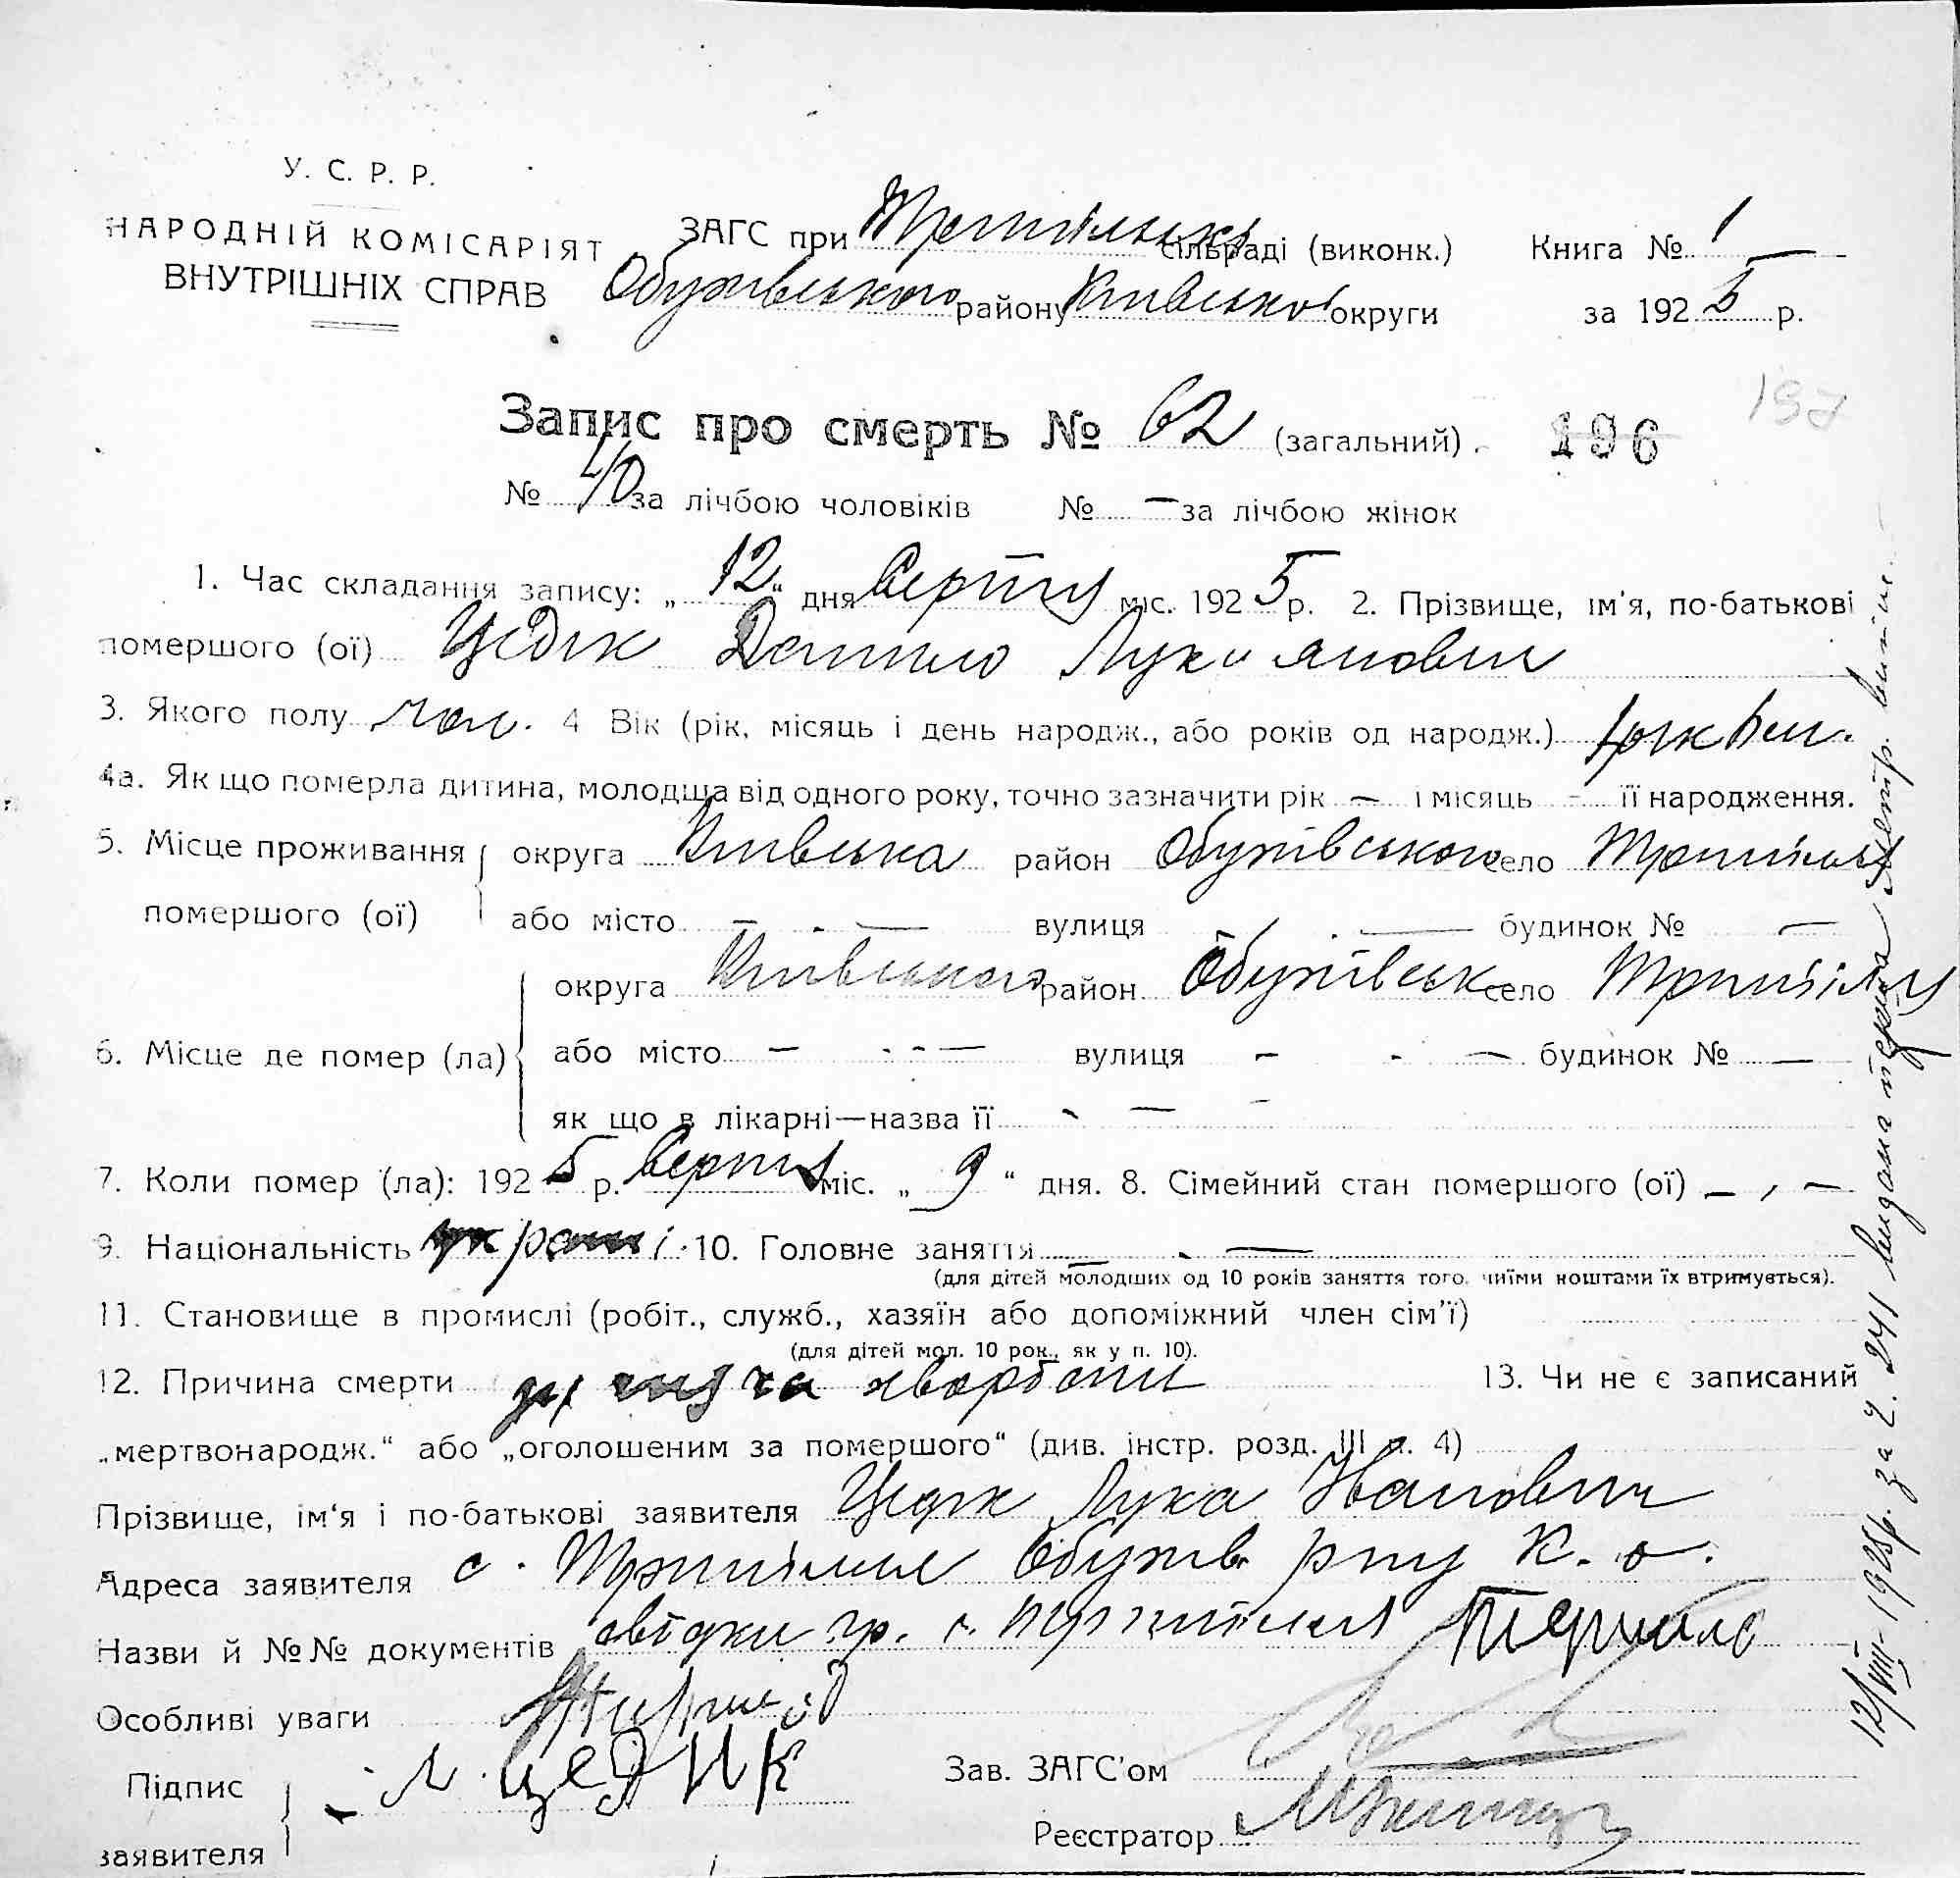 У. С. Р. Р.
НАРОДНІЙ КОМІСАРІЯТ
ВНУТРІШНІХ СПРАВ
ЗАГС при Трипільські сільраді (виконк.) Книга № 1
Обухівського району Київської округи за 1925 р.
Запис про смерть № 62 (загальний). 196 197
№ 40 за лічбою чоловіків № — за лічбою жінок
1. Час складання запису: „12“ дня Серпня міс. 1925 р. 2. Прізвище, ім'я, по-батькові
помершого (ої) Цедік Данило Лукіянович
3. Якого полу чол. 4 Вік (рік, місяць і день народж., або років од народж.) 1 рік
4а. Як що померла дитина, молодща від одного року, точно зазначити рік — і місяць - її народження.
5. Місце проживання помершого (ої) округа Київська район Обухівського село Трипілля
або місто — - — вулиця — будинок № —
6. Місце де помер (ла) округа Київського район Обухівськ село Трипілля
або місто — - - — вулиця - - — будинок № —
як що в лікарні—назва її - — -
7. Коли помер (ла): 1925 р. Серпня міс. „9“ дня. 8. Сімейний стан помершого (ої) — , —
9. Національність украін. 10. Головне заняття — - —
(для дітей молодших од 10 років заняття того, чиїми коштами їх втримується).
11. Становище в промислі (робіт., служб., хазяїн або допоміжний член сім'ї)
(для дітей мол. 10 рок., як у п. 10).
12. Причина смерти дитяча хвороба 13. Чи не є записаний
„мертвонародж.“ або „оголошеним за помершого“ (див. інстр. розд. III п. 4)
Прізвище, ім'я і по-батькові заявителя Цедік Лука Іванович
Адреса заявителя с. Трипілля Обухів. р-ну К. о.
Назви й №№ документів овідки гр. с. Трипілля
Особливі уваги
Підпис заявителя Л. Цедик
Зав. ЗАГС'ом
Реєстратор
12/VIII-1925р. за ч. 241 видана перша метр. витпис.